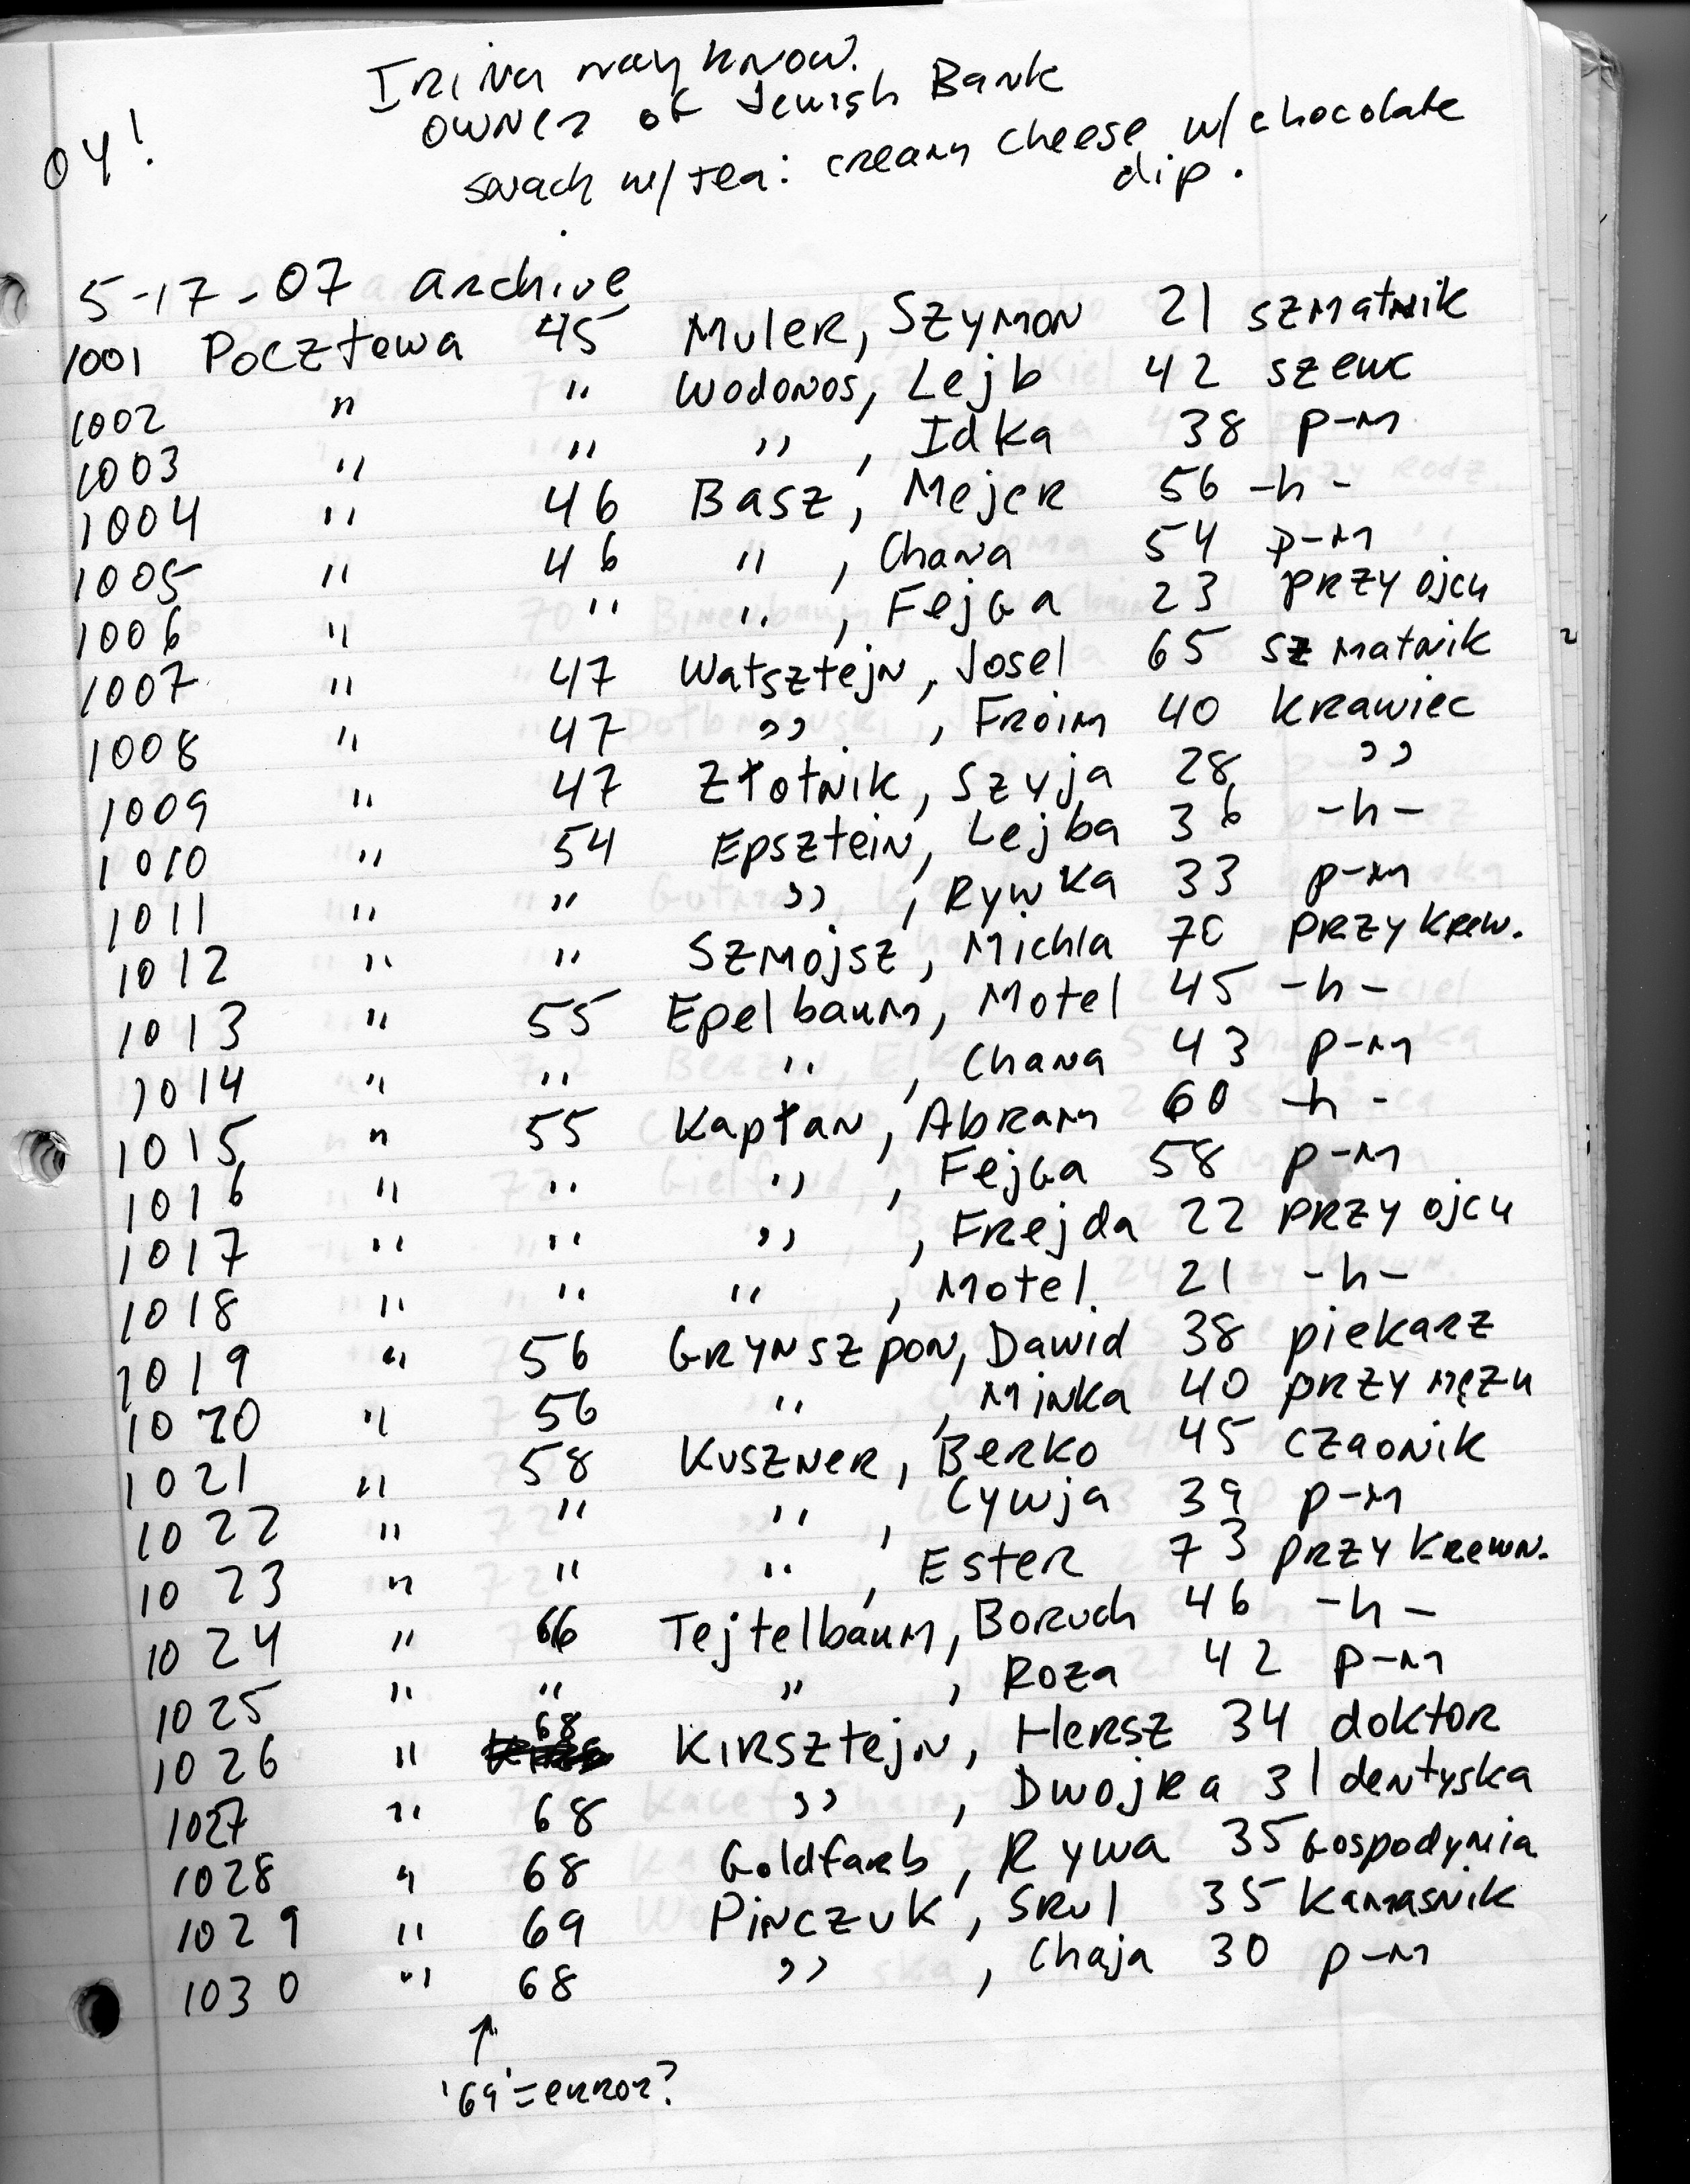 Irina may know.
owner of Jewish Bank
OY!
snack w/ tea: cream cheese w/ chocolate
dip.
5-17-07 archive
1001 Pocztowa 45 Muler, Szymon 21 szmatnik
1002 " " Wodonos, Lejb 42 szewc
1003 " " " , Idka 38 p-m
1004 " 46 Basz, Mejer 56 -h-
1005 " 46 " , Chana 54 p-m
1006 " " " , Fejga 23 przy ojcu
1007 " 47 Watsztejn, Josel 65 szmatnik
1008 " 47 " , Froim 40 krawiec
1009 " 47 Złotnik, Szyja 28 "
1010 " 54 Epsztein, Lejba 36 -h-
1011 " " " , Rywka 33 p-m
1012 " " Szmojsz, Michla 70 przy krew.
1013 " 55 Epelbaum, Motel 45 -h-
1014 " " " , Chana 43 p-m
1015 " 55 Kapłan, Abram 60 -h-
1016 " " " , Fejga 58 p-m
1017 " " " , Frejda 22 przy ojcu
1018 " " " , Motel 21 -h-
1019 " 56 Grynszpon, Dawid 38 piekarz
1020 " 56 " , Minka 40 przy mężu
1021 " 58 Kuszner, Berko 45 czaonik
1022 " " " , Cywja 39 p-m
1023 " " " , Ester 73 przy krewn.
1024 " 66 Tejtelbaum, Boruch 46 -h-
1025 " " " , Roza 42 p-m
1026 " 68 Kirsztejn, Hersz 34 doktor
1027 " 68 " , Dwojra 31 dentyska
1028 " 68 Goldfarb, Rywa 35 gospodynia
1029 " 69 Pinczuk, Srul 35 kamasnik
1030 " 68 " , Chaja 30 p-m
↑
'69' = error?